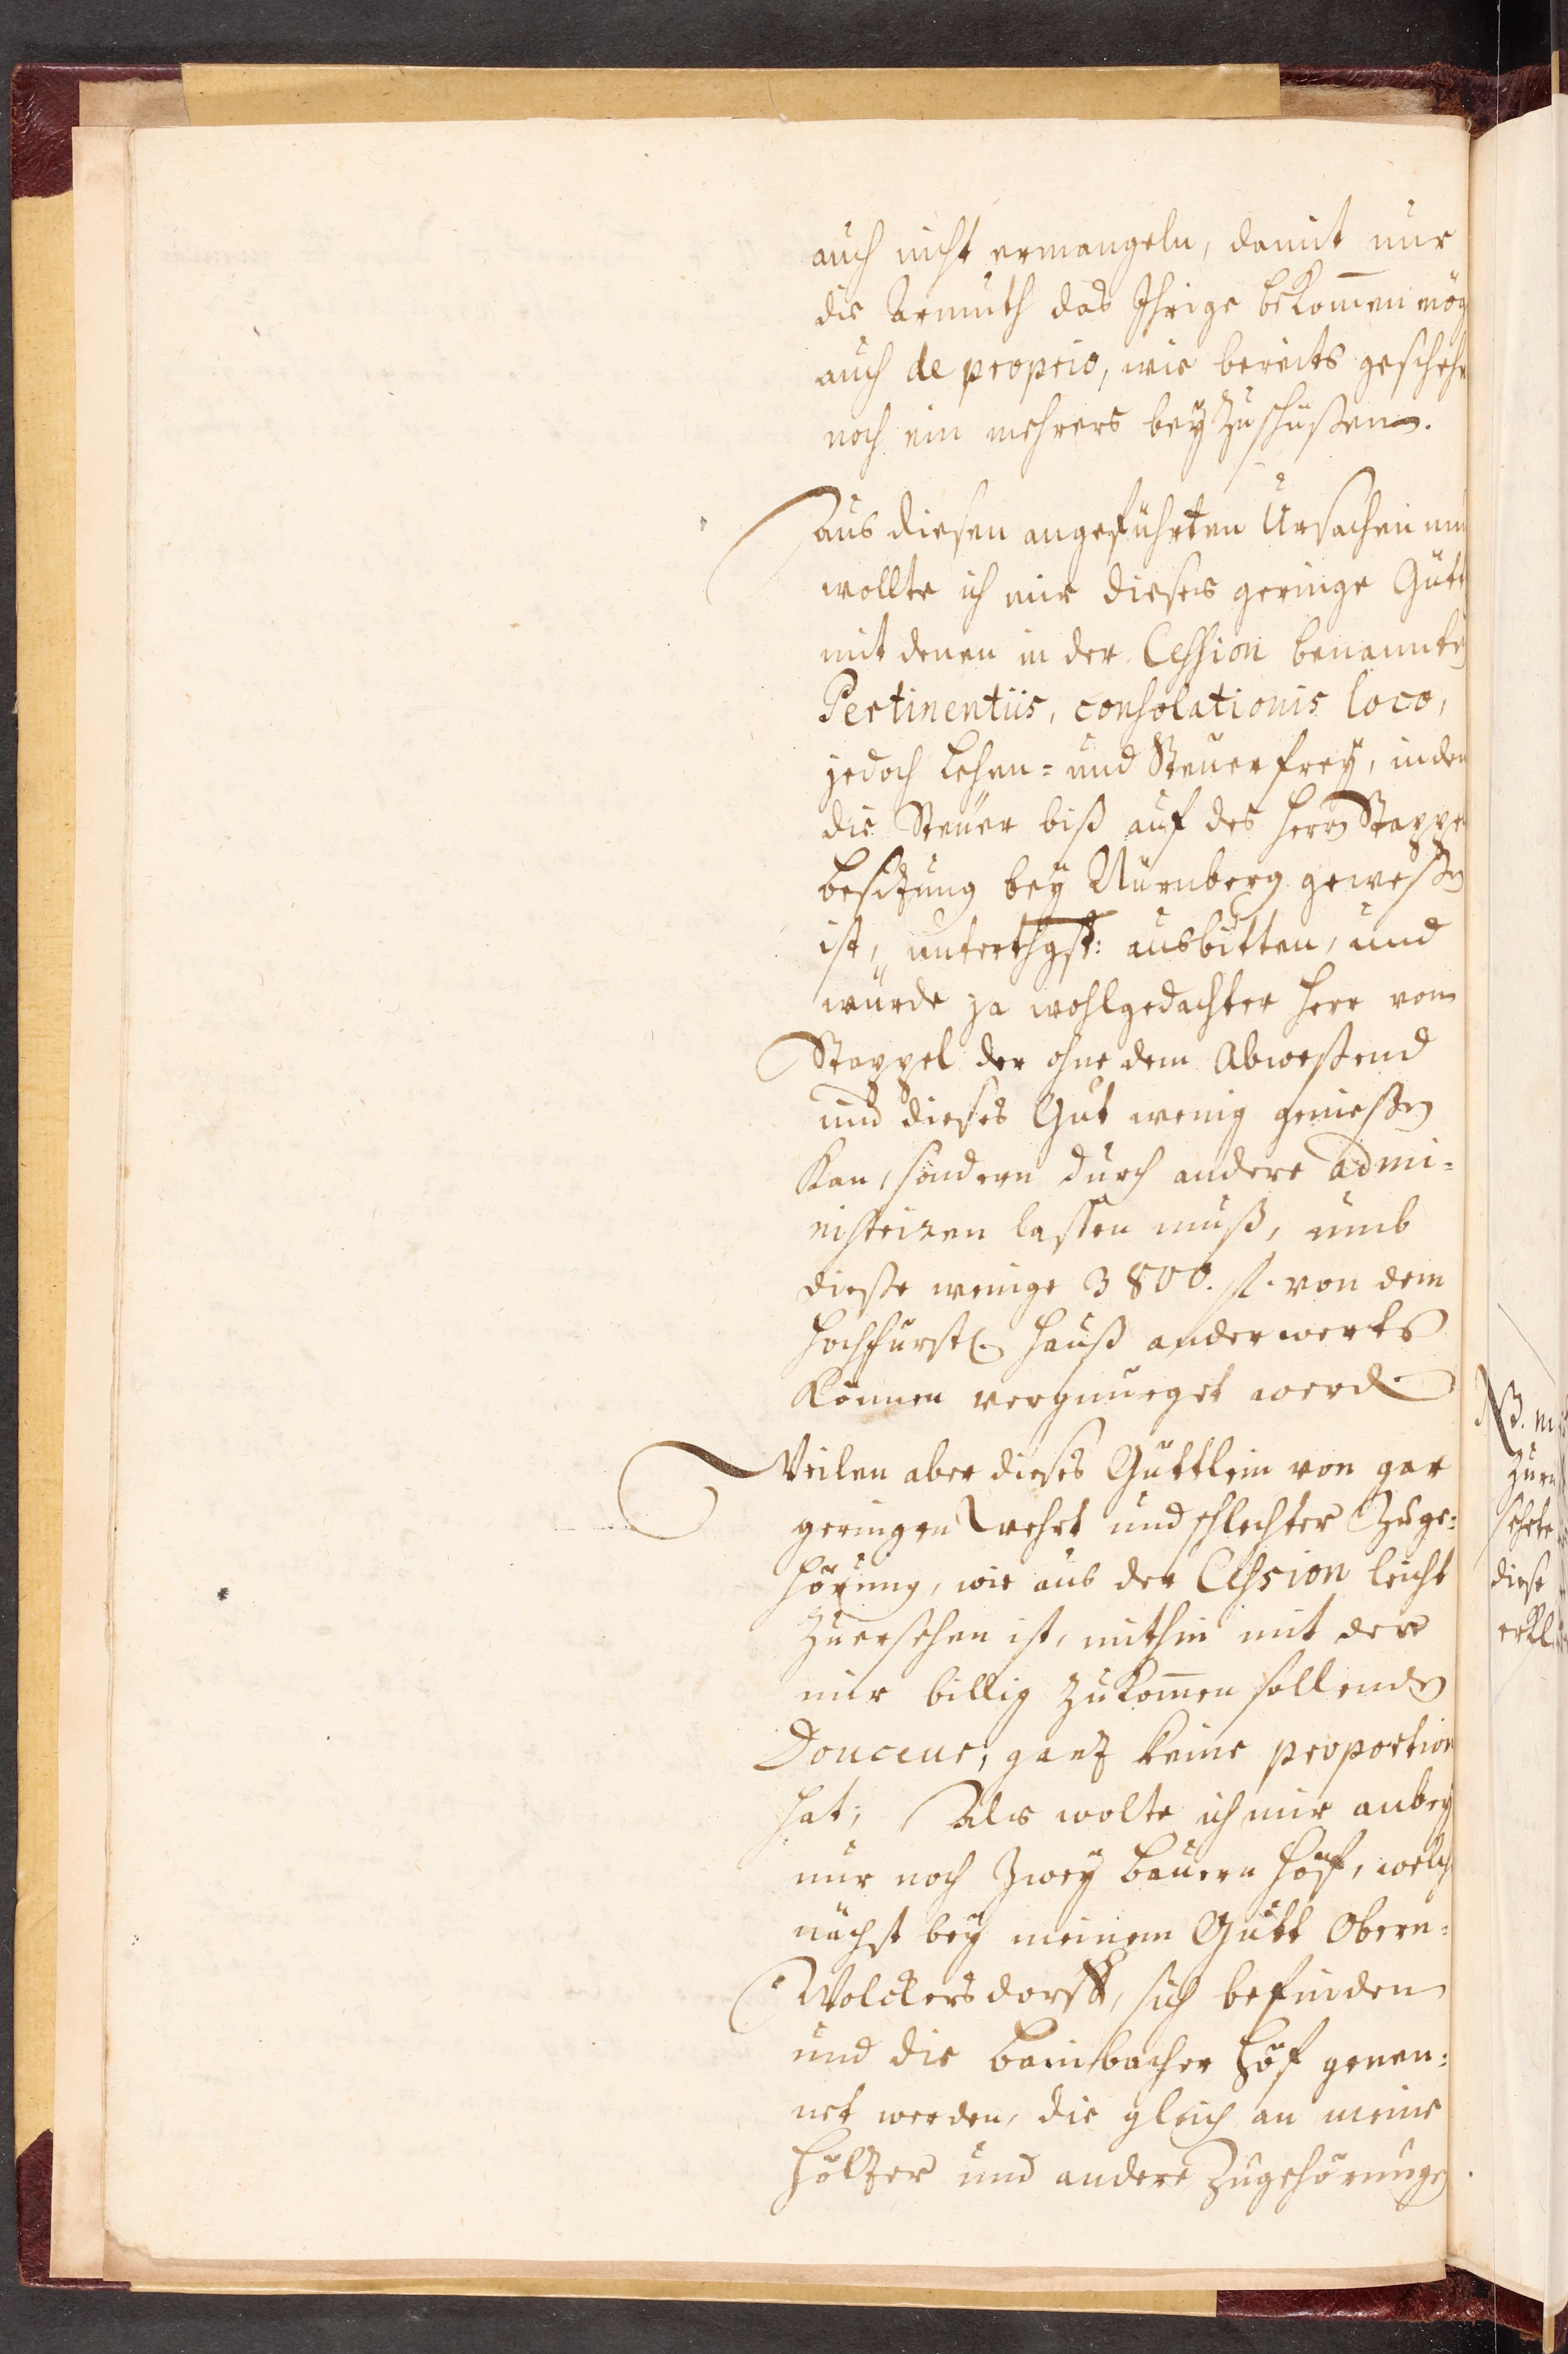 auch nicht ermangeln, damit nur
die Armuth das Ihrige bekommen mög
auch de proprio, wie bereits gescheh
noch ein mehrers beyzuschüßen.
Aus diesen angeführten Ursachen nun
wollte ich mir dieses geringe Gütt
mit denen in der Cession benannten
Pertinentiis, consolationis loco,
jedoch Lehen- und Steuerfrey, indem
die Steuer biß auf des Herrn Stappel
besitzung bey Nürnberg gewesen
ist, unterthgst: ausbitten, und
würde ja wohlgedachter Herr von
Stappel der ohne dem Abweßend
und dieses Gut wenig genießen
kan, sondern durch andere admi-
nistriren lassen muß, umb
dieße wenige 3800. fl. von dem
Hochfürstl. Hauß anderwerts
können vergnueget werden
Weilen aber dieses Güttlein von gar
geringen wehrt und schlechter Zuge-
hörung, wie aus der Cession leicht
zuersehen ist, mithin mit der
mir billig zukommen sollenden
Douceur, gantz keine proportion
hat; Als wolte ich mir anbey
nur noch zwey bauern Höf, welch
nächst bey meinem Gütt Obern-
Wolckersdorff, sich befinden
und die Bainbacher Höf genen-
net werden, die gleich an meine
Höltzer und andere Zugehörungen
NB.
zum
diese